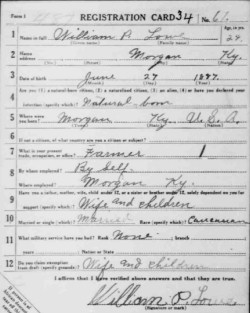 Form 1
REGISTRATION CARD 34 No. 61
1 Name in full William P. Lowe Age, in yrs. 29
(Given name) (Family name)
2 Home address Morgan Ky.
3 Date of birth June 27 1887
(Month) (Day) (Year)
4 Are you (1) a natural-born citizen, (2) a naturalized citizen, (3) an alien, (4) or have you declared your
intention (specify which)? Natural born
5 Where were you born? Morgan Ky. U.S.A.
(Town) (State) (Nation)
6 If not a citizen, of what country are you a citizen or subject?
7 What is your present trade, occupation, or office? Farmer 1
8 By whom employed? By Self.
Where employed? Morgan Ky.
9 Have you a father, mother, wife, child under 12, or a sister or brother under 12, solely dependent on you for
support (specify which)? Wife and children
10 Married or single (which)? Married Race (specify which)? Caucasian
11 What military service have you had? Rank None branch
years Nation or State
12 Do you claim exemption from draft (specify grounds)? Wife and children
I affirm that I have verified above answers and that they are true.
William P. Lowe
(Signature or mark)